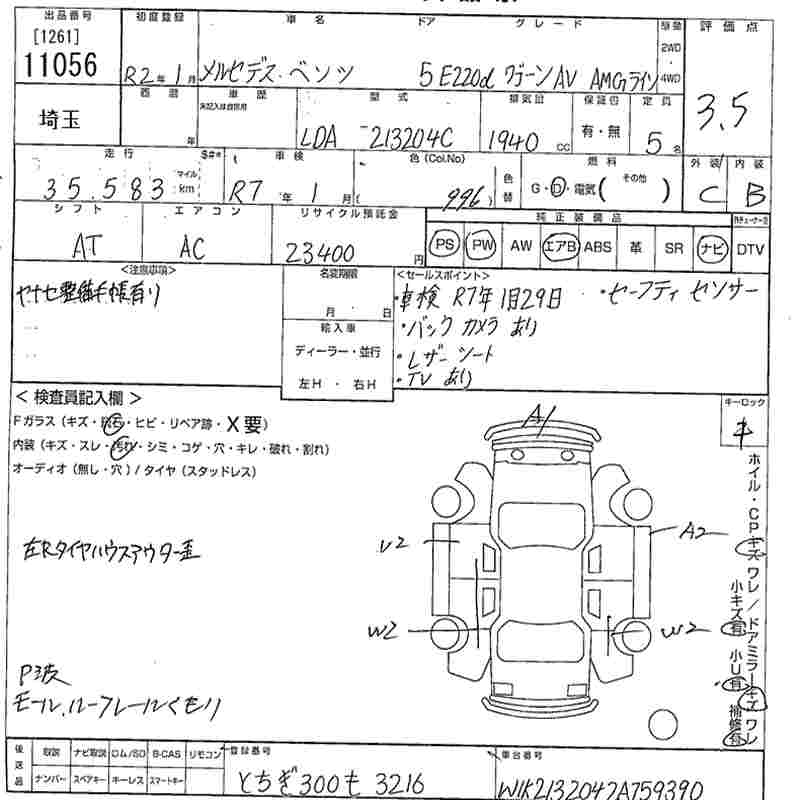 出品番号 初度登録 車名 ドア グレード 駆動 評価点
[1261]
11056
R2年1月 メルセデス・ベンツ 5 E220d ワゴンAV AMGライン
2WD・4WD
3.5
埼玉
西暦 年
車歴
未記入は自家用
型式 LDA 213204C
排気量 1940 cc
保証書 有・無
定員 5名
走行 $#*
35,583 マイル km
車検 R7年1月
色(Col.No) (996)
色替
燃料 G・D・電気( その他 )
外装 C
内装 B
シフト AT
エアコン AC
リサイクル預託金 23400円
純正装備品
PS PW AW エアB ABS 革 SR ナビ DTV
<注意事項>
ヤナセ整備手帳有り
名変期限
月 日
輸入車
ディーラー・並行
左H・右H
<セールスポイント>
・車検 R7年1月29日 ・セーフティ センサー
・バック カメラ あり
・レザー シート
・TV あり
<検査員記入欄>
Fガラス(キズ・飛石・ヒビ・リペア跡・X要)
内装(キズ・スレ・汚れ・シミ・コゲ・穴・キレ・破れ・割れ)
オーディオ(無し・穴)/タイヤ(スタッドレス)
キーロック
キ
A1
U2
A2
W2
W2
左Rタイヤハウスアウター歪
P3枚
モール、ルーフレールくもり
ホイル・CPキズ ワレ/ドアミラーキズ ワレ
小キズ有 小U有 補修有
後送品
取説 ナビ取説 ロム/SD B-CAS リモコン
ナンバー スペアキー キーレス スマートキー
登録番号
とちぎ300も3216
車台番号
W1K2132042A759390